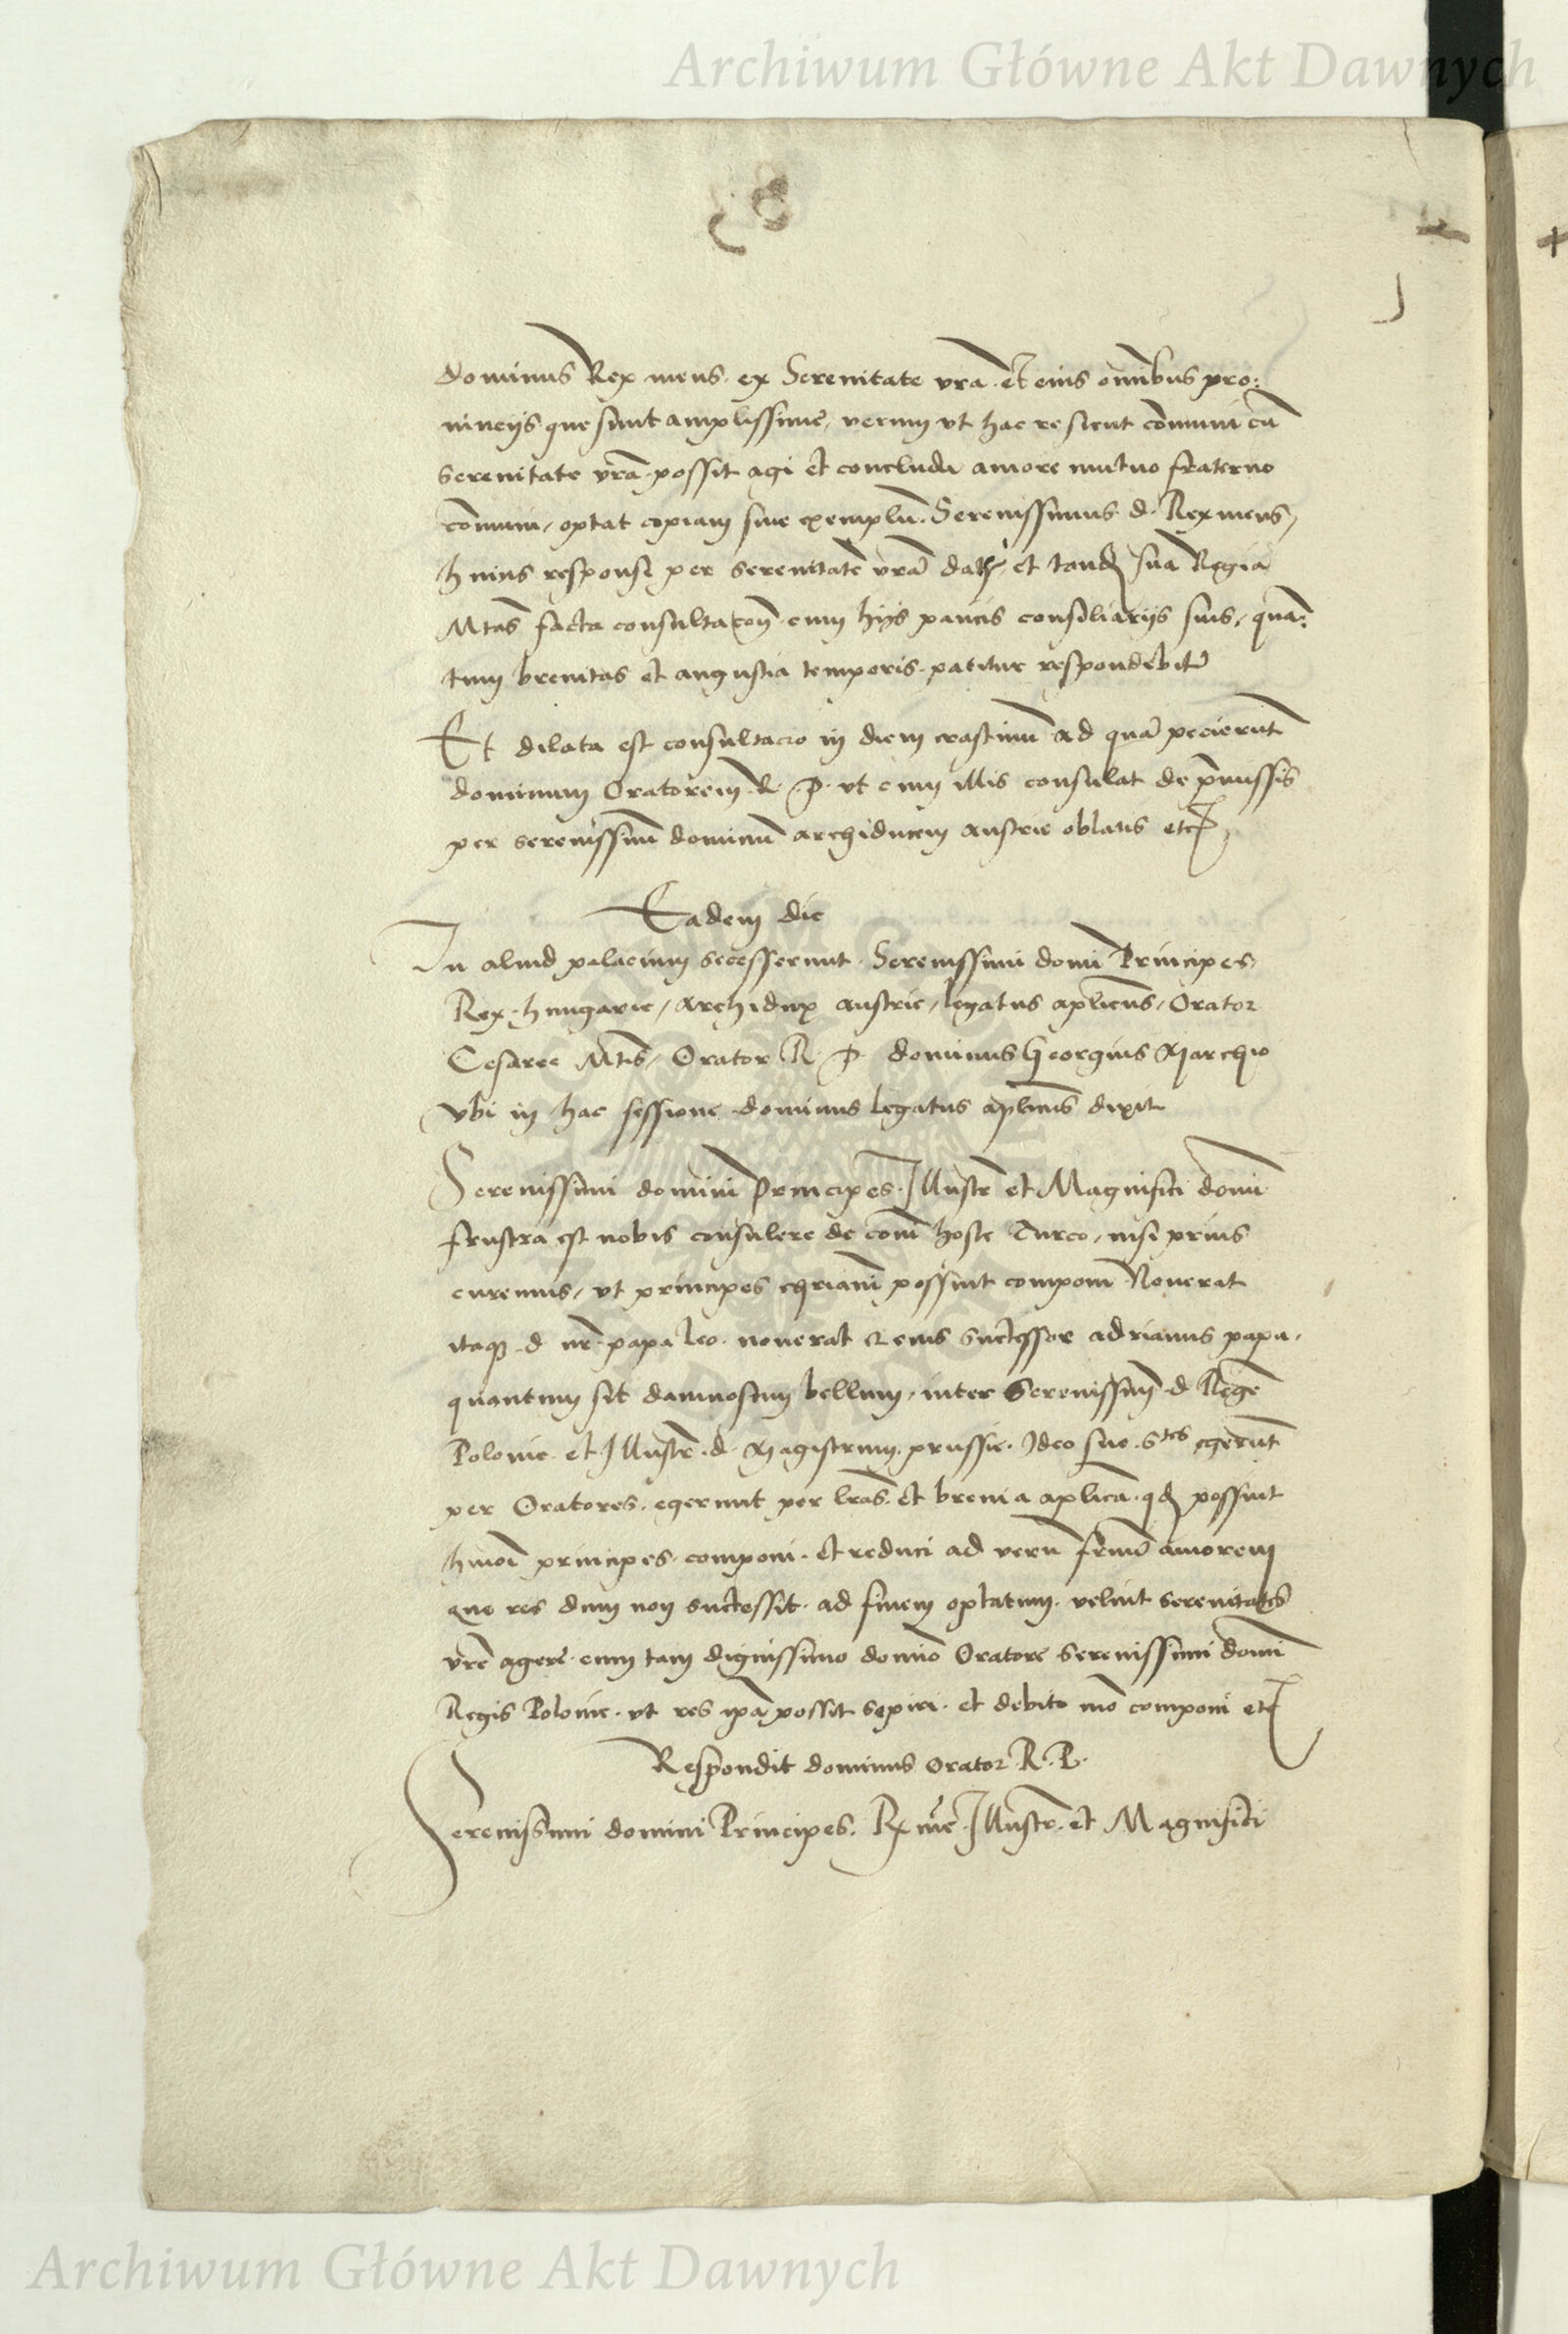 Archiwum Główne Akt Dawnych
dominus Rex meus. ex Serenitate vra. et eius omĩbus pro:
uincijs que sunt amplissime, verum vt hac re sicut comuni cũ
serenitate vrã possit agi et concludi amore mutuo fraterno
comuni, optat copiam siue exemplũ. Serenissimus d. Rex meus,
huius responsi per serenitatẽ vrã dati, et tandẽ sua Regia
Mtas facta consultacõe cum hijs paucis consiliarijs suis, quan:
tum breuitas et angustia temporis patitur respondebitr
Et dilata est consultacio in diem crastinũ ad quã pecierũt
dominum Oratorem R. P. vt cum illis consulat de p̃missis
per serenissimũ dominũ archiducem austrie oblatis etc
Eadem die
In aliud palacium secesserunt. Serenissimi domi Principes
Rex hungarie, Archidux austrie, legatus aplicus, Orator
Cesaree Mtis, Orator R. P. dominus Georgius Marchio
vbi in hac sessione dominus legatus aplicus dixit
Serenissimi domini Principes. Illustr̃ et Magnifici domi
frustra est nobis consulere de com̃i hoste Turco, nisi prius
curemus, vt principes chriani possint componi Nouerat
itaqȝ d nr̃ papa leo. nouerat et eius successor adrianus papa.
quantum sit damnosum bellum, inter Serenissimũ d Regẽ
Polonie et Illustr̃. d. Magistrum prussie. Ideo sue Stes egerũt
per Oratores. egerunt per lr̃as et breuia aplica. qd possint
hmoi principes componi. et reduci ad verũ fr̃nũ amorem
que res dum non successit ad finem optatum. velint serenitates
vr̃e agere cum tam dignissimo domĩo Oratore serenissimi domi
Regis Polonie. vt res ip̃a possit sopiri. et debito mõ componi etc
Respondit dominus Orator. R. P.
Serenissimi domini Principes. Illustr̃. et Magnifici
Archiwum Główne Akt Dawnych